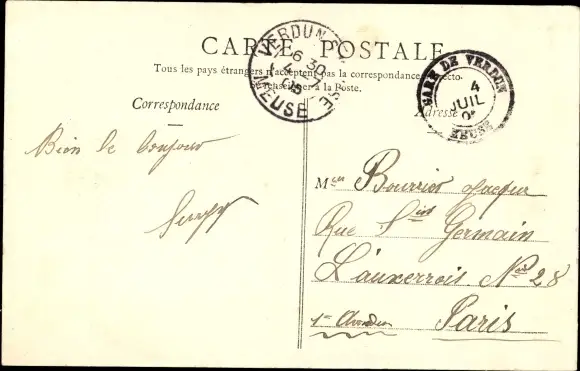 CARTE POSTALE
Tous les pays étrangers n'acceptent pas la correspondance au recto.
Se renseigner à la Poste.
VERDUN
6 30
4 -7
05
MEUSE
GARE DE VERDUN
4
JUIL
MEUSE
Correspondance
Adresse
Bien le bonjour
Mr Bourrier Jacques
Rue St Germain
L'auxerrois. No 28
Paris